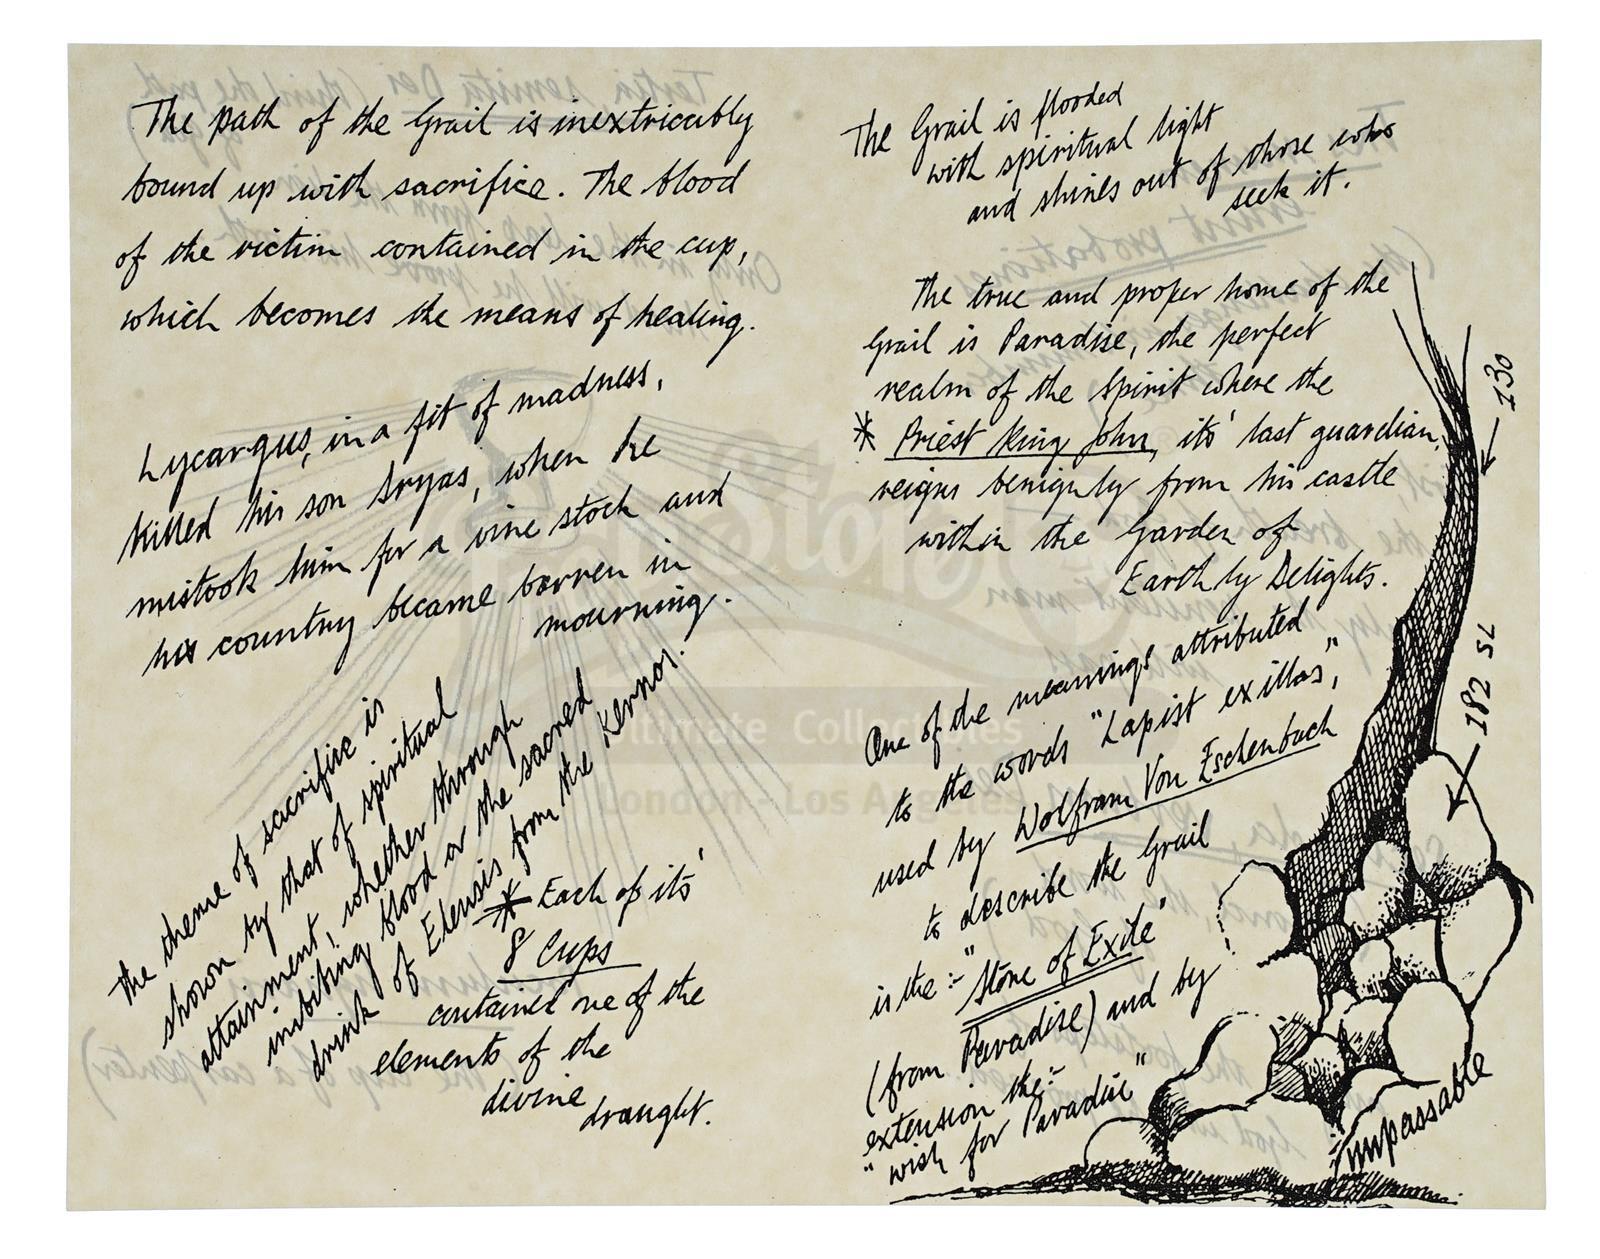 The path of the Grail is inextricably
bound up with sacrifice. The blood
of the victim contained in the cup,
which becomes the means of healing.
Lycargus, in a fit of madness,
killed his son Dryas, when he
mistook him for a vine stock and
his country became barren in
mourning.
The theme of sacrifice is
shown by that of spiritual
attainment, whether through
imbibing blood or the sacred
drink of Eleusis from the Kernos.
* Each of its'
8 Cups
contained one of the
elements of the
divine
draught.
The Grail is flooded
with spiritual light
and shines out of those who
seek it.
The true and proper home of the
Grail is Paradise, the perfect
realm of the Spirit where the
* Priest King John, its' last guardian,
reigns benignly from his castle
within the Garden of
Earthly Delights.
One of the meanings attributed
to the words "Lapist exillas,"
used by Wolfram Von Eschenbach
to describe the Grail
is the :- "Stone of Exile"
(from Paradise) and by
extension the:-
"wish for Paradise"
130
182 SL
Impassable
Store
Ultimate Collectibles
London - Los Angeles